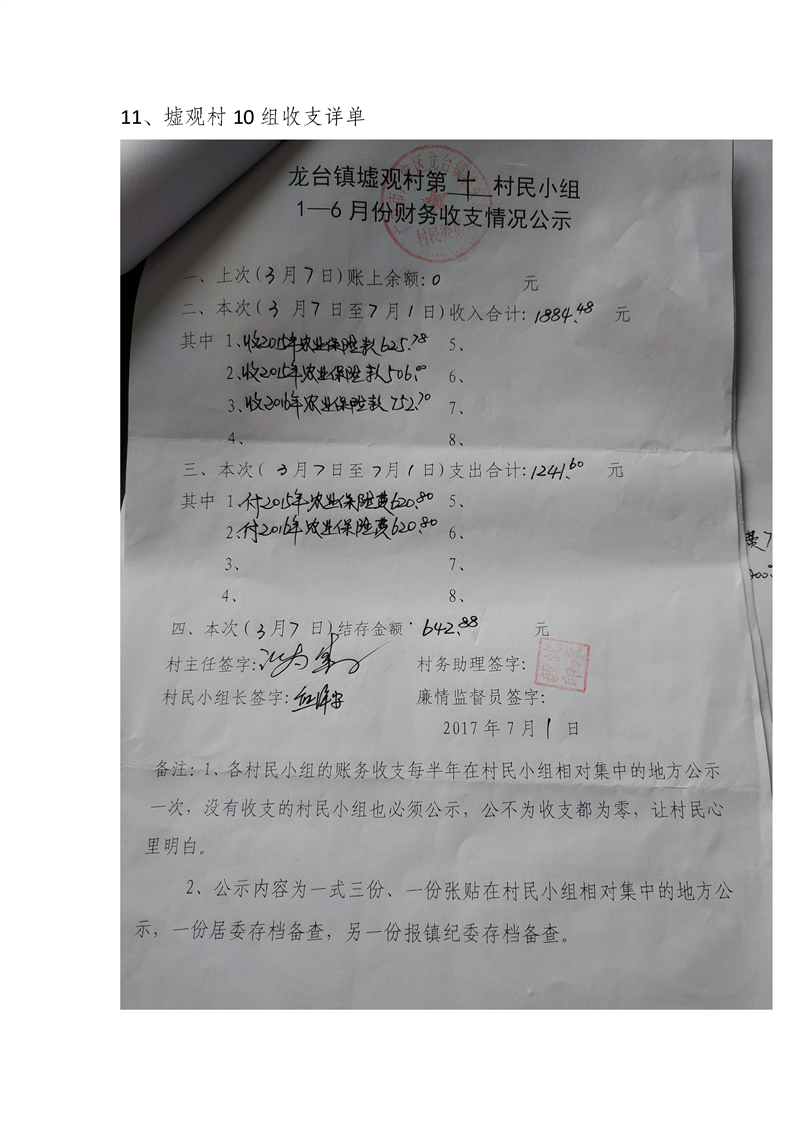 11、墟观村 10 组收支详单
龙台镇墟观村第 十 村民小组
1—6 月份财务收支情况公示
一、上次(3月7日)账上余额:0 元
二、本次(3 月7日至7月1日)收入合计:1884.48 元
其中 1、收2015年农业保险款625.78 5、
2、收2015年农业保险款506.00 6、
3、收2016年农业保险款752.70 7、
4、 8、
三、本次( 3月7日至7月1日)支出合计:1241.60 元
其中 1、付2015年农业保险费620.80 5、
2、付2016年农业保险费620.80 6、
3、 7、
4、 8、
费7
四、本次(3月7 日)结存金额:642.88 元
村主任签字: 村务助理签字:
村民小组长签字: 廉情监督员签字:
2017 年 7 月 1 日
备注:1、各村民小组的账务收支每半年在村民小组相对集中的地方公示
一次,没有收支的村民小组也必须公示,公不为收支都为零,让村民心
里明白。
2、公示内容为一式三份、一份张贴在村民小组相对集中的地方公
示,一份居委存档备查,另一份报镇纪委存档备查。